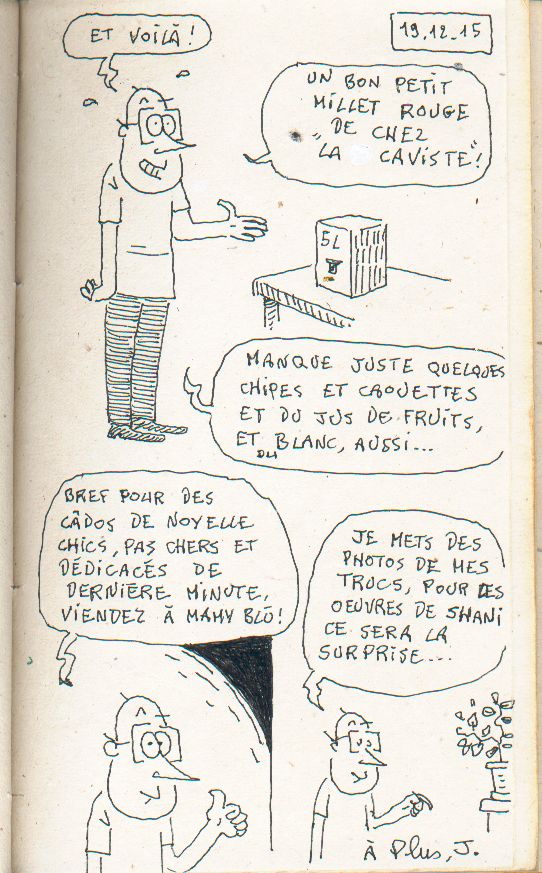 ET VOILÀ !
19.12.15
UN BON PETIT
MILLET ROUGE
"DE CHEZ
LA CAVISTE" !
5L
MANQUE JUSTE QUELQUES
CHIPES ET CAOUETTES
ET DU JUS DE FRUITS,
ET DU BLANC, AUSSI...
BREF POUR DES
CÂDOS DE NOYELLE
CHICS, PAS CHERS ET
DÉDICACÉS DE
DERNIÈRE MINUTE,
VIENDEZ À MAHY BLÛ !
JE METS DES
PHOTOS DE MES
TRUCS, POUR LES
OEUVRES DE SHANI
CE SERA LA
SURPRISE...
À Plus, J.